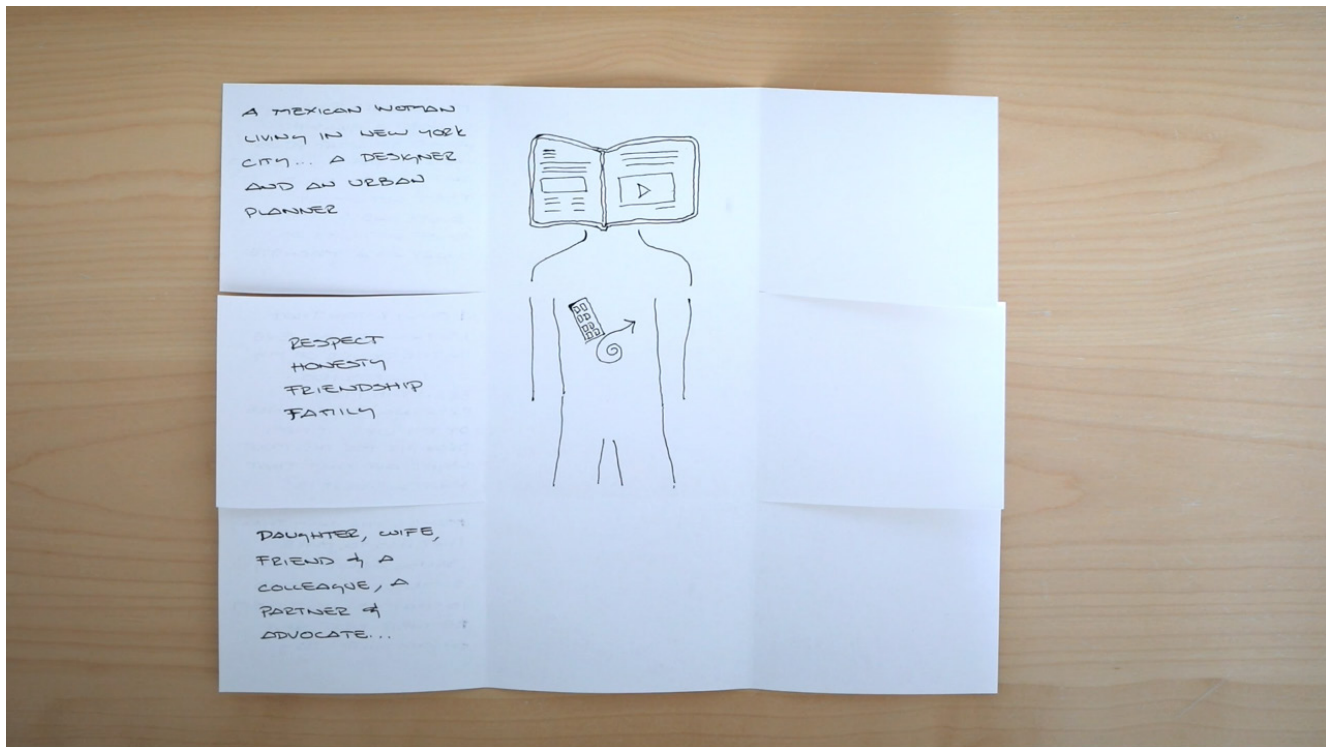 A MEXICAN WOMAN
LIVING IN NEW YORK
CITY... A DESIGNER
AND AN URBAN
PLANNER
RESPECT
HONESTY
FRIENDSHIP
FAMILY
DAUGHTER, WIFE,
FRIEND & A
COLLEAGUE, A
PARTNER &
ADVOCATE...